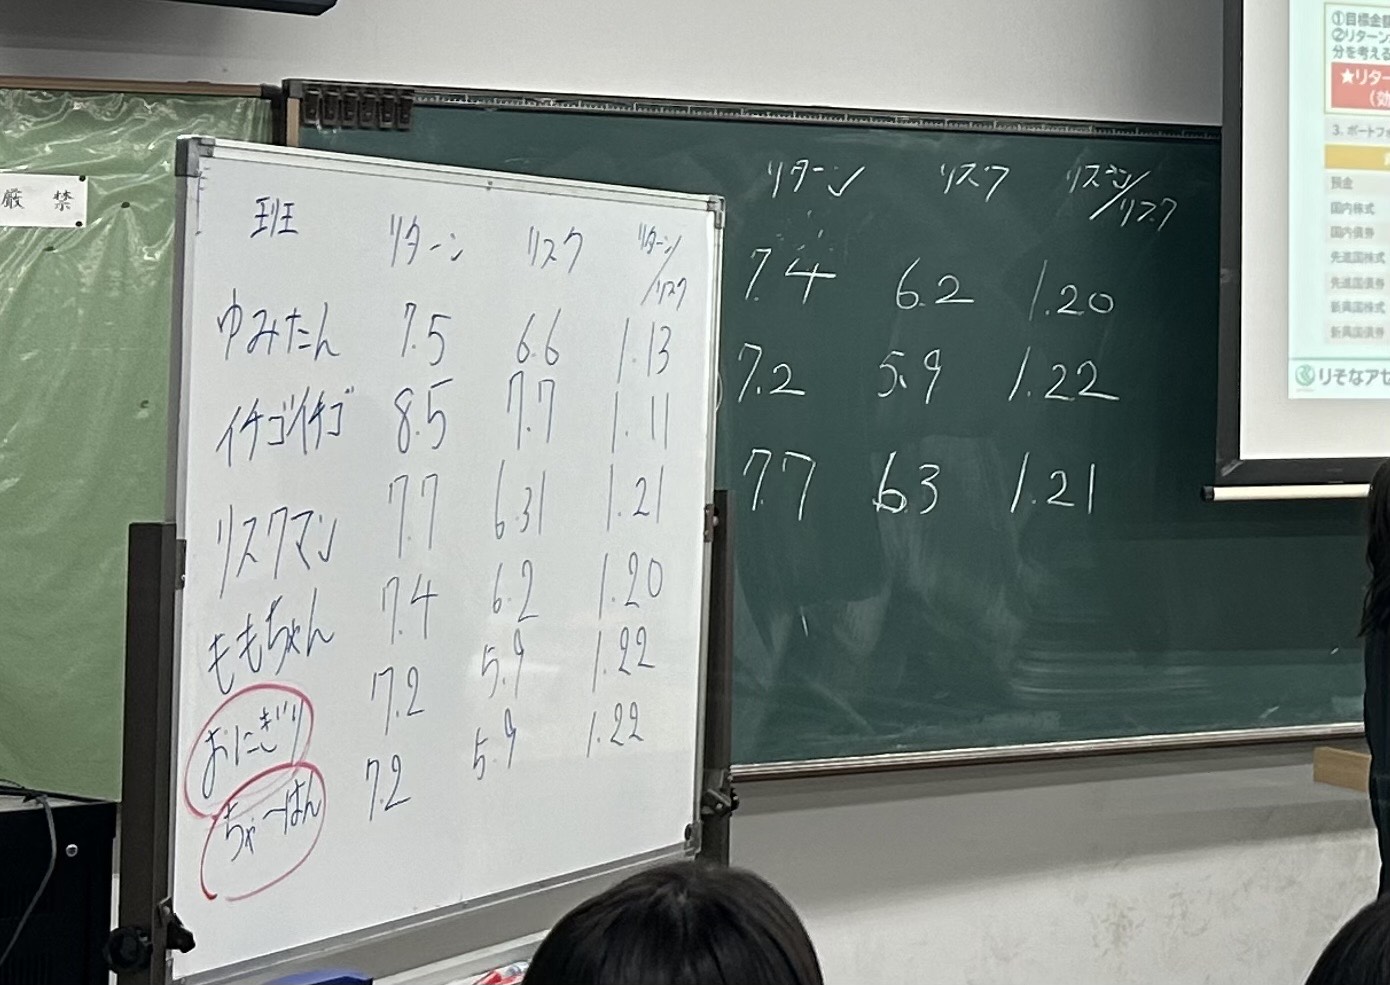 厳禁
班 リターン リスク リターン/リスク
ゆみたん 7.5 6.6 1.13
イチゴイチゴ 8.5 7.7 1.11
リスクマン 7.7 6.31 1.21
ももちゃん 7.4 6.2 1.20
おにぎり 7.2 5.9 1.22
ちゃーはん 7.2 5.9 1.22
リターン リスク /リスク
7.4 6.2 1.20
7.2 5.9 1.22
7.7 6.3 1.21
①目標金額
②リターン
分を考える
★リター
(効
3. ポートフォ
預金
国内株式
国内債券
先進国株式
先進国債券
新興国株式
新興国債券
りそなアセ